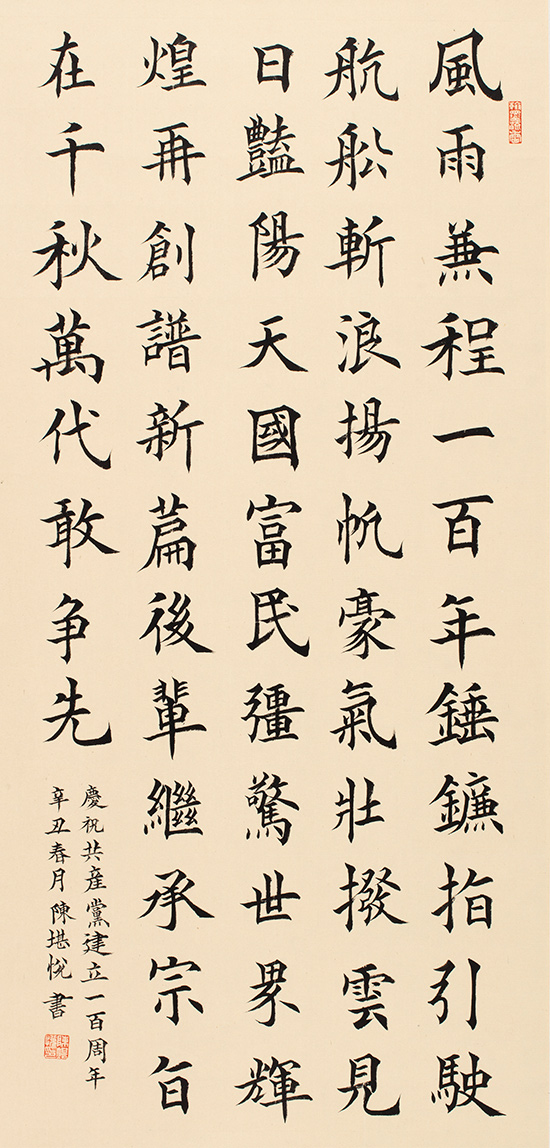 風雨兼程一百年錘鐮指引駛
航船斬浪揚帆豪氣壯撥雲見
日豔陽天國富民彊驚世界輝
煌再創譜新篇後輩繼承宗旨
在千秋萬代敢争先
慶祝共産黨建立一百周年
辛丑春月陳堪悅書